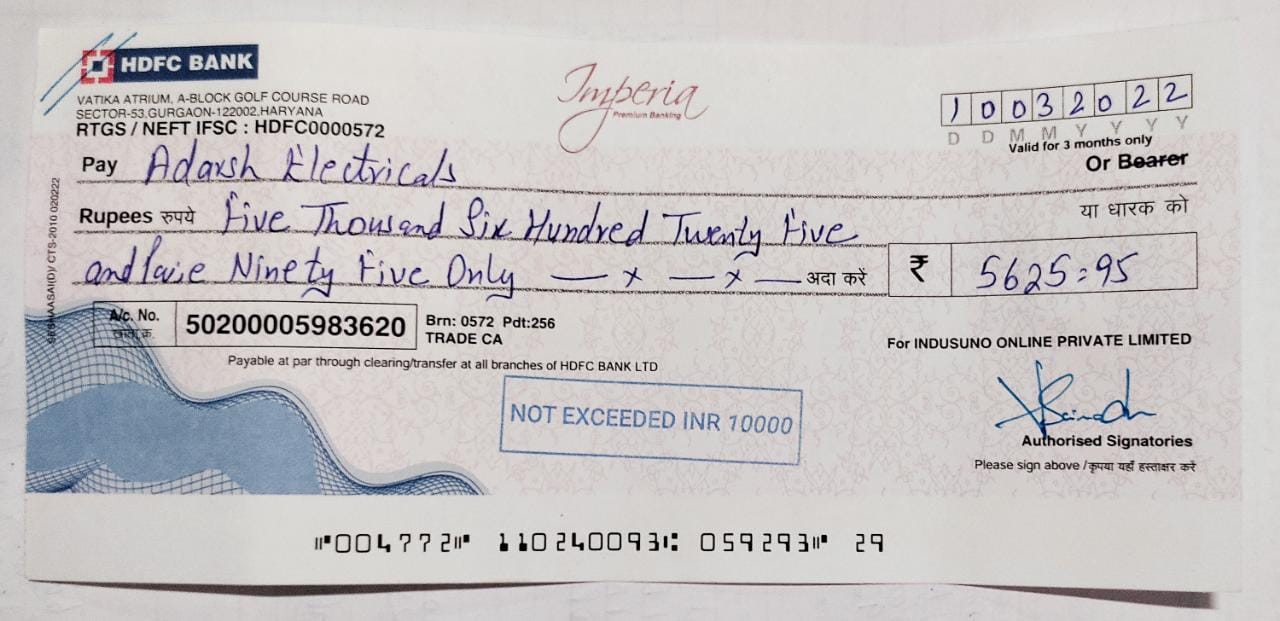 HDFC BANK
VATIKA ATRIUM, A-BLOCK GOLF COURSE ROAD
SECTOR-53,GURGAON-122002,HARYANA
RTGS / NEFT IFSC : HDFC0000572
Imperia
Premium Banking
10032022
D D M M Y Y Y Y
Valid for 3 months only
Pay Adarsh Electricals
Or Bearer
Rupees रुपये Five Thousand Six Hundred Twenty Five
या धारक को
and Paise Ninety Five Only — x — x — अदा करें
₹ 5625=95
A/c. No.
खाता क्र.
50200005983620
Brn: 0572 Pdt:256
TRADE CA
Payable at par through clearing/transfer at all branches of HDFC BANK LTD
For INDUSUNO ONLINE PRIVATE LIMITED
NOT EXCEEDED INR 10000
Authorised Signatories
Please sign above /कृपया यहाँ हस्ताक्षर करें
⑈004772⑈ 110240093⑆ 059293⑈ 29
CTS-2010 020222